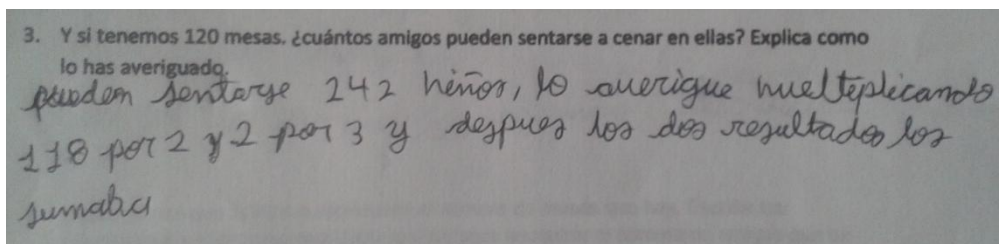 3. Y si tenemos 120 mesas. ¿cuántos amigos pueden sentarse a cenar en ellas? Explica como
lo has averiguado.
pueden sentarse 242 niños, lo averigue multiplicando
118 por 2 y 2 por 3 y despues los dos resultados los
sumaba